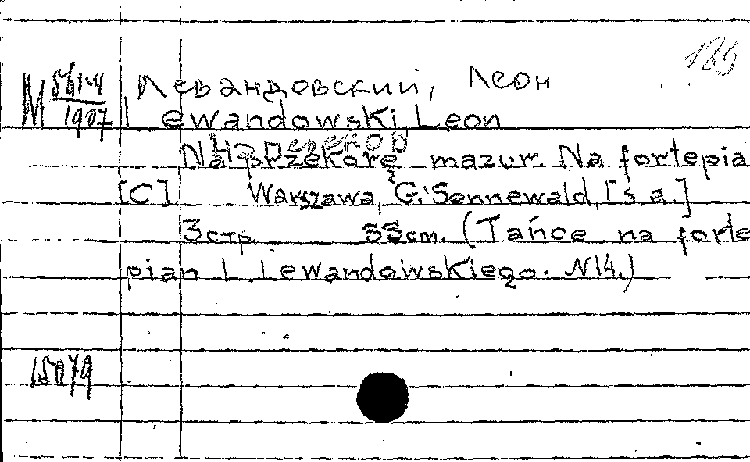 189
M 561-4/1907
Левандовский, Леон
Lewandowski Leon
Na przekorę mazur. Na fortepia
[C] Warszawa, G. Sennewald, [s a.]
3 стр. 33 cm. (Tańce na forte
pian L. Lewandowskiego. N14.)
15079